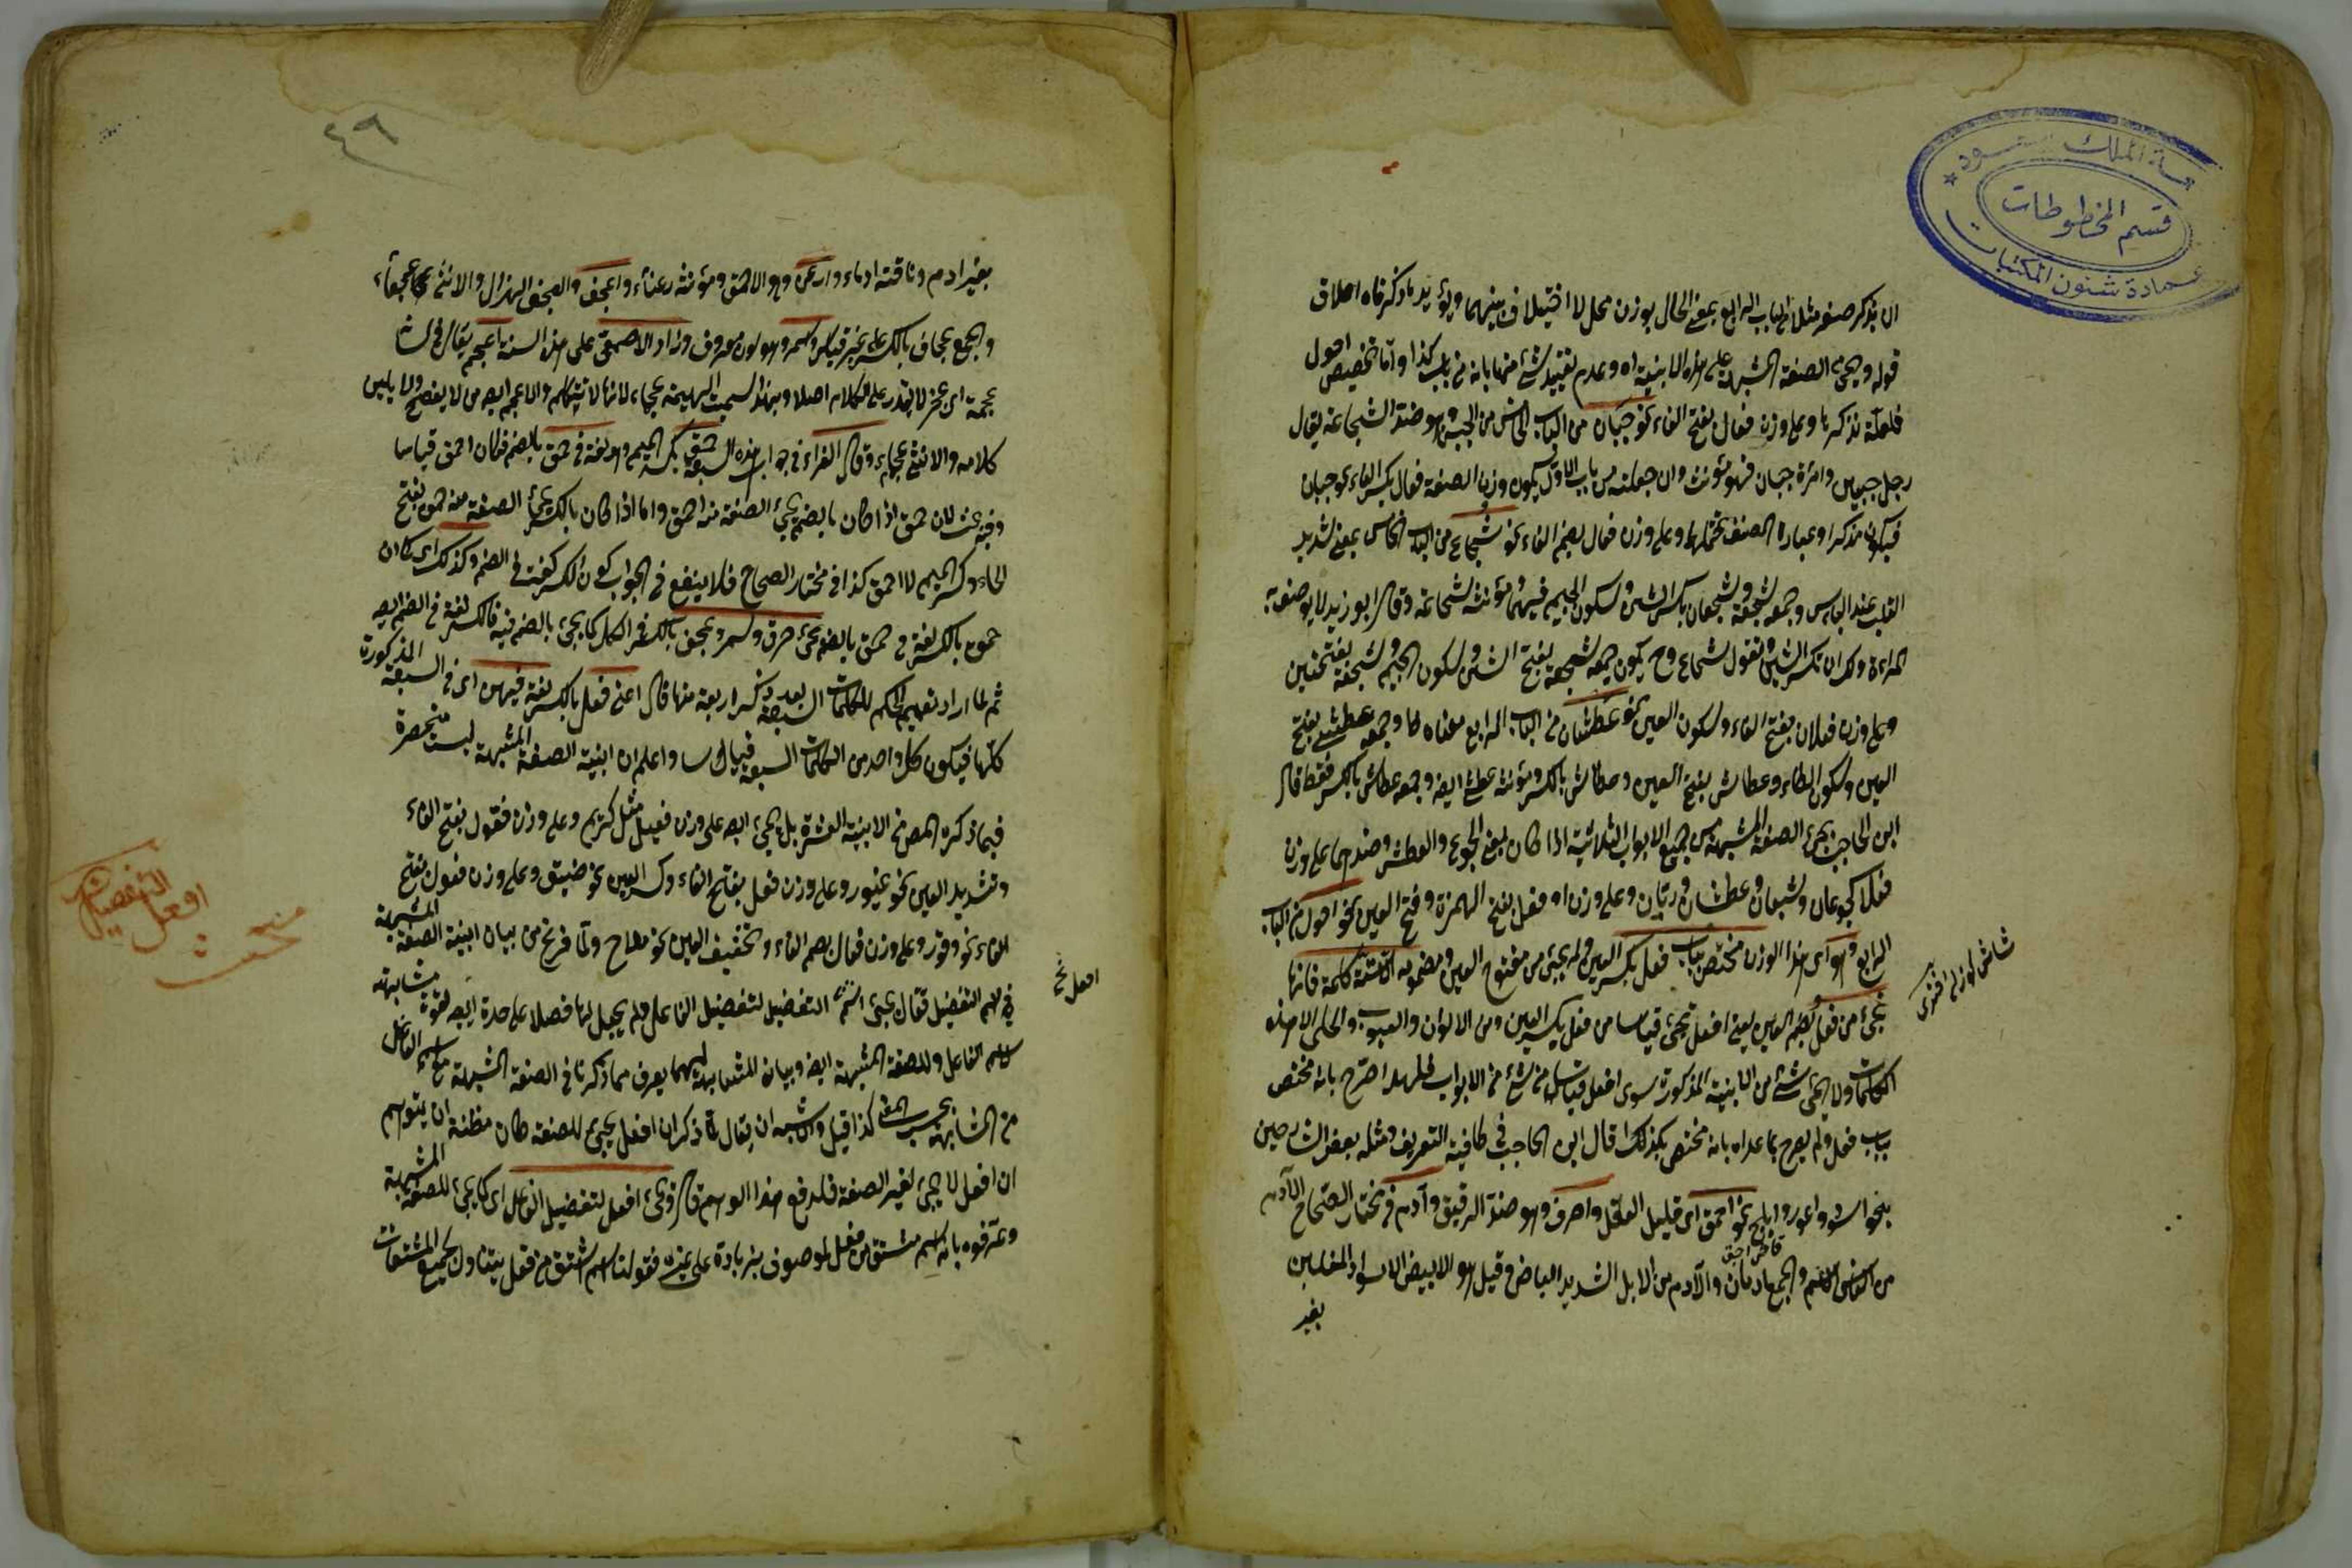 جامعة الملك سعود
قسم المخطوطات
عمادة شئون المكتبات
ان يذكر صفر مثلا من الباب الرابع بمعنى الخال بوزن محل لا اختلاف بينهما ويؤيد ما ذكرناه اطلاق
قوله ويجئ الصفة المشبهة على هذه الابنية اه وعدم تقييد شئ منها بانه من باب كذا واما تخصيص احول
فلعلة نذكرها وعلى وزن فعال بفتح الفاء نحو جبان من الباب الخامس من الجبن وهو ضد الشجاعة يقال
رجل جبين وامرأة جبان فهو مؤنث وان جعلته من باب الاول يكون وزن الصفة فعال بكسر الفاء نحو جبان
فيكون مذكرا وعبارة المصنف تحتملهما وعلى وزن فعال بضم الفاء نحو شجاع من الباب الخامس بمعنى شديد
القلب عند البأس وجمعه شجعة وشجعان بكسر الشين وسكون الجيم فيهما ومؤنثه شجاعة وقال ابو زيد لا يوصف به
المراءة ولك ان تكسر الشين وتقول شجاع وح يكون جمعه شجعة بفتح الشين وسكون الجيم وشجعة بفتحتين
وعلى وزن فعلان بفتح الفاء وسكون العين نحو عطشان من الباب الرابع معناه ظا وجمعه عطشى بفتح
العين وسكون الطاء وعطاشى بفتح العين وعطاش بالكسر ومؤنثه عطشى ايضا وجمعه عطاش بالكسر فقط قال
ابن الحاجب يجئ الصفة المشبهة من جميع الابواب الثلاثية اذا كان بمعنى الجوع والعطش وضدهما على وزن
فعلان كجوعان وشبعان وعطشان وريان وعلى وزن افعل بفتح الهمزة وفتح العين نحو احول من الباب
الرابع وهو اى هذا الوزن مختص بباب فعل بكسر العين ولم يجئ من مفتوح العين ومضمومه الا ستة كلمة فانها
تجئ من فعل بضم العين يعنى افعل تجئ قياسا من فعل بكسر العين ومن الالوان والعيوب والحلى الا هذه
الكلمات ولا يجئ شئ من الابنية المذكورة سوى افعل قياسا من شئ من الابواب فلهذا صرح بانه مختص
بباب فعل ولم يصرح بما عداه بانه مختص بكذلك قال ابن الحاجب في كافية التعريف ومثله بعض الشارحين
بنحو اسود واعور وابلج نحو احمق اى قليل العقل واخرق وهو ضد الرفيق وآدم في مختار الصحاح الآدم
من الناس الاسمر والجمع ادمان والآدم من الابل الشديد البياض وقيل هو الابيض الاسود المقلتين
بعير
٤٩
بعير ادم وناقته ادماء وارعن وهو الاحمق ومؤنثه رعناء واعجف والعجف الهزال والانثى عجفاء
والجمع عجاف بالكسر على غير قياس واسمر وهو لون معروف وزاد الاصمعى على هذه الستة اعجم يقال في لسانه
عجمة اى عجز لا يقدر على الكلام اصلا وبهذا سميت البهيمة عجماء لانها لا تتكلم والاعجم ايضا من لا يفصح ولا يبين
كلامه والانثى عجماء وقال الفراء في جواب هذه السبعة حمق بكسر الميم وهو لغة في حمق بالضم فكان احمق قياسا
وفيه بحث لان حمق اذا كان بالضم يجئ الصفة منه احمق واما اذا كان بالكسر يجئ الصفة منه حمق بفتح
الحاء وكسر الميم لا احمق كذا في مختار الصحاح فلا ينفع في الجواب كون الكسر لغة في الضم وكذلك اى كما ان
حمق بالكسر لغة في حمق بالضم يجئ خرق وسمر وعجف بالكسر في الكل كما يجئ بالضم فيه فالكسر لغة في الضم ايضا
ثم لما اراد تعميم الحكم للكلمات السبعة بعد ذكر اربعة منها قال اعنى فعل بالكسر لغة فيهن اى في السبعة المذكورة
كلها فيكون كل واحد من الكلمات السبعة قياسا واعلم ان ابنية الصفة المشبهة ليست منحصرة
فيما ذكره المص من الابنية العشرة بل يجئ ايضا على وزن فعيل مثل كريم وعلى وزن فعول بفتح الفاء
وتشديد العين نحو غيور وعلى وزن فعل بفتح الفاء وكسر العين نحو ضيق وعلى وزن فعول بفتح
الفاء نحو وقور وعلى وزن فعال بضم الفاء وتخفيف العين نحو ملاح ولما فرغ من بيان ابنية الصفة المشبهة
في اسم التفضيل فقال يجئ اسم التفضيل لتفضيل الفاعل ولم يجعل لها فصلا على حدة ايضا لقوة مشابهته
لاسم الفاعل وللصفة المشبهة ايضا وبيان المشابهة لهما يعرف مما ذكرنا في الصفة المشبهة مع اسم الفاعل
من المشابهة بحسب المعنى كذا قيل والاشبه ان يقال لما ذكر ان افعل يجئ للصفة كان مظنة ان يتوهم
ان افعل لا يجئ لغير الصفة فلدفع هذا الوهم قال ويجئ افعل لتفضيل الفاعل اى كما يجئ للصفة المشبهة
وعرفوه بانه اسم مشتق من فعل لموصوف بزيادة على غيره فقولنا اسم مشتق من فعل يتناول لجميع المشتقات
افعل نخ
افعل التفضيل